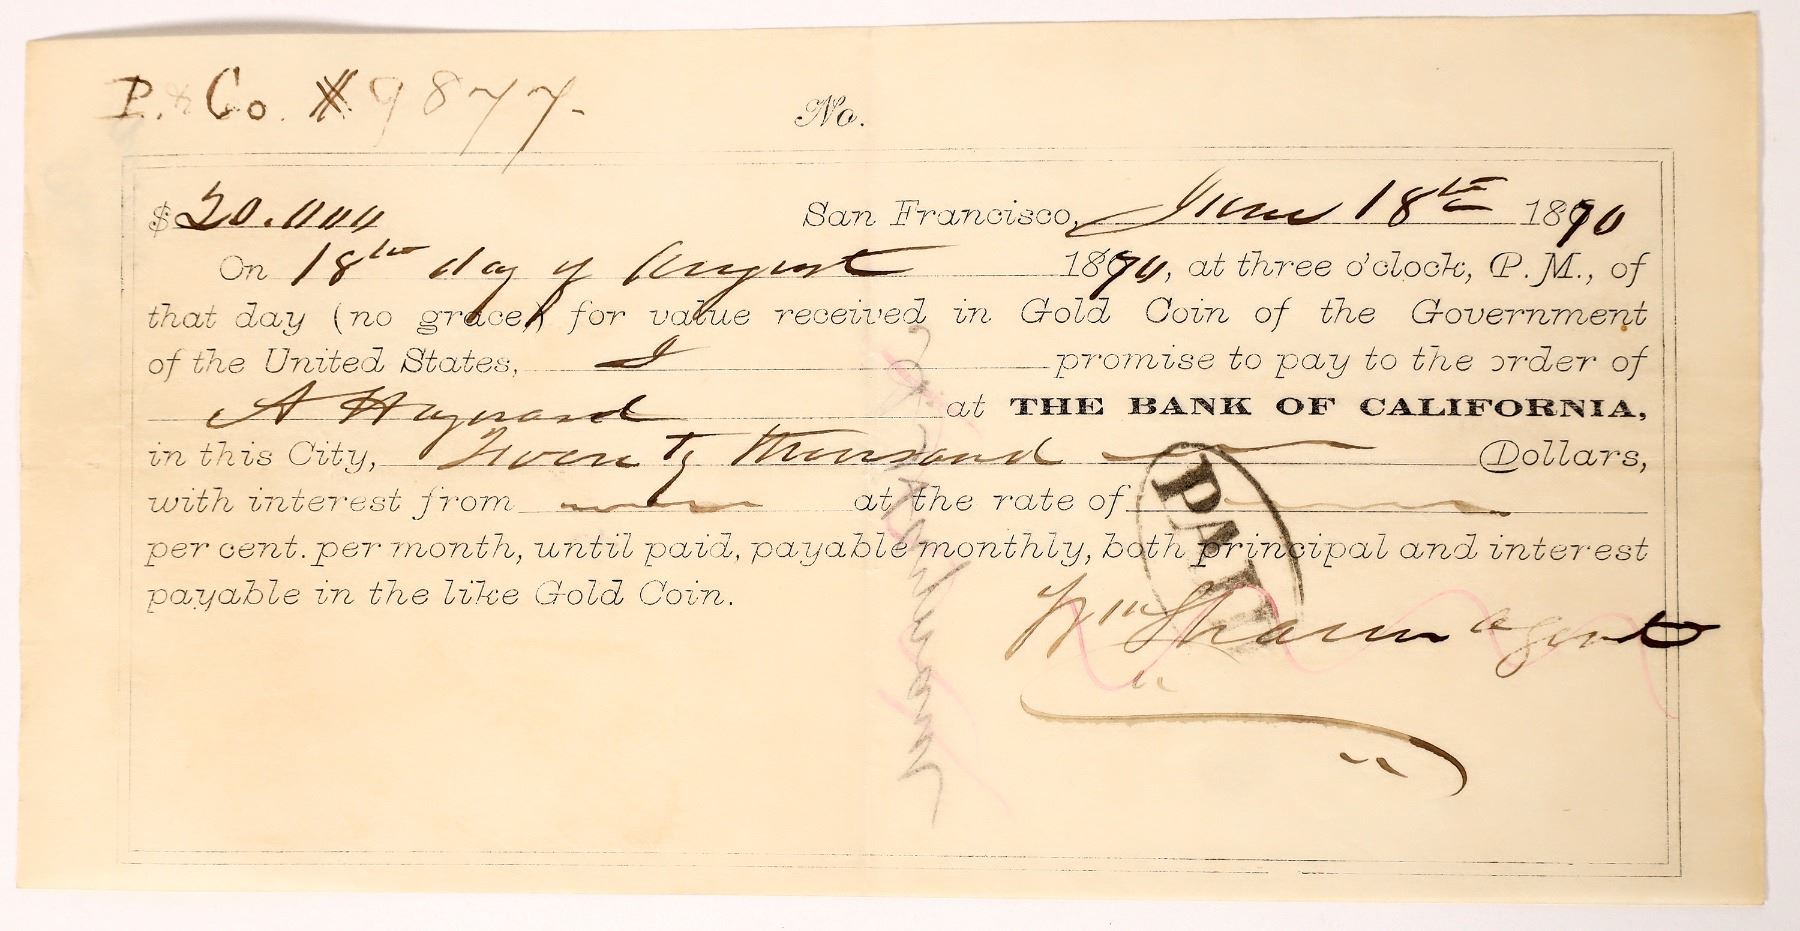 P. & Co. # 9877.
No.
$20.000 San Francisco, June 18th 1870
On 18th day of August 1870, at three o'clock, P.M., of
that day (no grace) for value received in Gold Coin of the Government
of the United States, I promise to pay to the order of
A Hayward at THE BANK OF CALIFORNIA,
in this City, Twenty Thousand Dollars,
with interest from at the rate of
per cent. per month, until paid, payable monthly, both principal and interest
payable in the like Gold Coin.
PAID
Wm Sharon agent